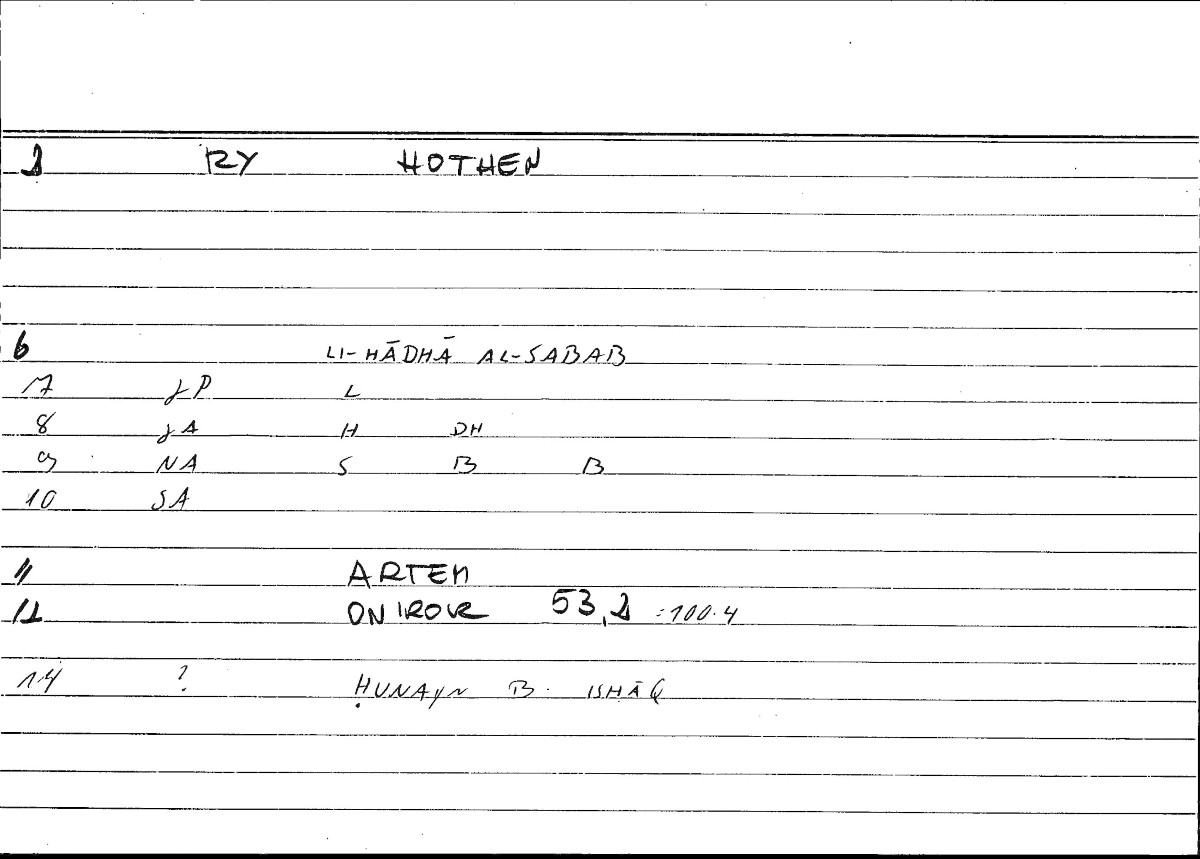 1 RY HOTHEN
6 LI-HĀDHĀ AL-SABAB
7 JP L
8 JA H DH
9 NA S B B
10 SA
11 ARTEM
12 ONIROKR 53,2 = 100.4
14 ? ḤUNAYN B. ISḤĀQ